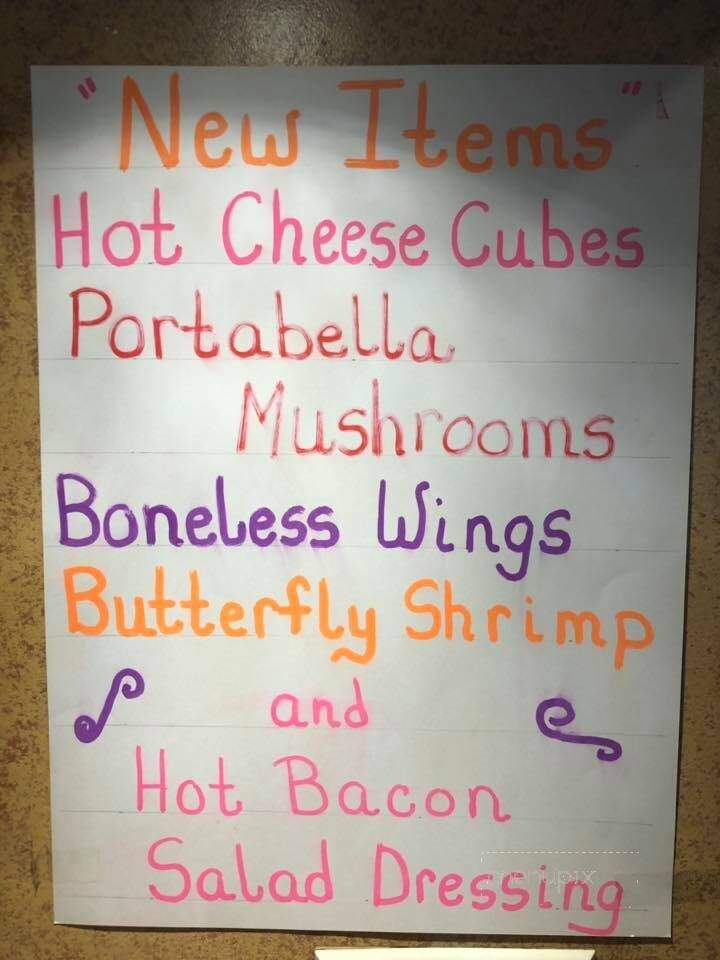 "New Items"
Hot Cheese Cubes
Portabella
Mushrooms
Boneless Wings
Butterfly Shrimp
and
Hot Bacon
Salad Dressing
menupix